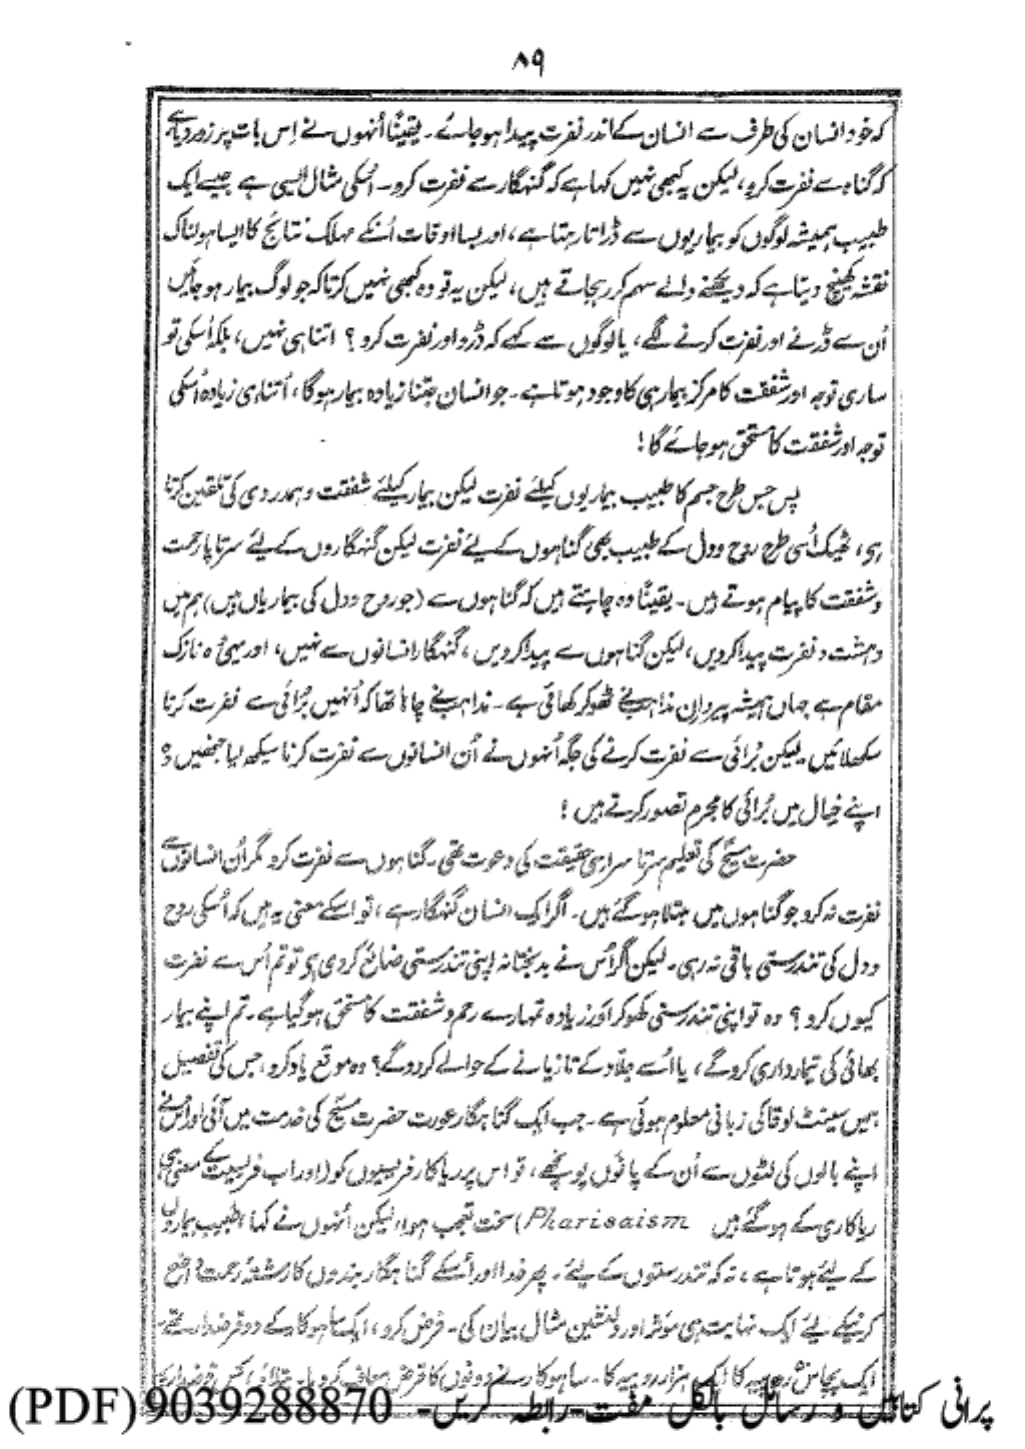 ۸۹
کہ خود انسان کی طرف سے انسان کے اندر نفرت پیدا ہو جائے۔ یقیناً اُنہوں نے اِس بات پر زور دیا ہے
کہ گناہ سے نفرت کرو، لیکن یہ کبھی نہیں کہا ہے کہ گنہگار سے نفرت کرو۔ اسکی مثال ایسی ہے جیسے ایک
طبیب ہمیشہ لوگوں کو بیماریوں سے ڈراتا رہتا ہے، اور بسا اوقات اُنکے مہلک نتائج کا ایسا ہولناک
نقشہ کھینچ دیتا ہے کہ دیکھنے والے سہم کر رہ جاتے ہیں، لیکن یہ تو وہ کبھی نہیں کرتا کہ جو لوگ بیمار ہو جائیں
اُن سے ڈرنے اور نفرت کرنے لگے، یا لوگوں سے کہے کہ ڈرو اور نفرت کرو؟ اتنا ہی نہیں، بلکہ اُسکی تو
ساری توجہ اور شفقت کا مرکز بیمار ہی کا وجود ہوتا ہے۔ جو انسان جتنا زیادہ بیمار ہوگا، اُتنا ہی زیادہ اُسکی
توجہ اور شفقت کا مستحق ہو جائے گا!
پس جس طرح جسم کا طبیب بیماریوں کیلئے نفرت لیکن بیمار کیلئے شفقت و ہمدردی کی تلقین کرتا
ہی، ٹھیک اُسی طرح روح و دل کے طبیب بھی گناہوں کے لیے نفرت لیکن گنہگاروں کے لیے سرتاپا رحمت
و شفقت کا پیام ہوتے ہیں۔ یقیناً وہ چاہتے ہیں کہ گناہوں سے (جو روح و دل کی بیماریاں ہیں) ہم میں
دہشت و نفرت پیدا کردیں، لیکن گناہوں سے پیدا کردیں، گنہگار انسانوں سے نہیں، اور یہی وہ نازک
مقام ہے جہاں ہمیشہ پیروانِ مذاہب نے ٹھوکر کھائی ہے۔ مذاہب نے چاہا تھا کہ اُنہیں بُرائی سے نفرت کرنا
سکھلائیں لیکن بُرائی سے نفرت کرنے کی جگہ اُنہوں نے اُن انسانوں سے نفرت کرنا سیکھ لیا جنھیں وہ
اپنے خیال میں بُرائی کا مجرم تصور کرتے ہیں!
حضرت مسیح کی تعلیم سرتا سر اسی حقیقت کی دعوت تھی۔ گناہوں سے نفرت کرو مگر اُن انسانوں سے
نفرت نہ کرو جو گناہوں میں مبتلا ہو گئے ہیں۔ اگر ایک انسان گنہگار ہے، تو اسکے معنی یہ ہیں کہ اُسکی روح
و دل کی تندرستی باقی نہ رہی۔ لیکن اگر اُس نے بدبختانہ اپنی تندرستی ضائع کردی ہی تو تم اُس سے نفرت
کیوں کرو؟ وہ تو اپنی تندرستی کھو کر اَور زیادہ تمہارے رحم و شفقت کا مستحق ہو گیا ہے۔ تم اپنے بیمار
بھائی کی تیمارداری کرو گے، یا اُسے جلّاد کے تازیانے کے حوالے کردو گے؟ وہ موقع یاد کرو، جس کی تفصیل
ہمیں سینٹ لوقا کی زبانی معلوم ہوئی ہے۔ جب ایک گناہگار عورت حضرت مسیح کی خدمت میں آئی اور اُسنے
اپنے بالوں کی لٹوں سے اُن کے پاؤں پونچھے، تو اس پر ریاکار فریسیوں کو (اور اب فریسیت کے معنی ہی
ریاکاری کے ہو گئے ہیں Pharisaism) سخت تعجب ہوا، لیکن اُنہوں نے کہا، طبیب بیماروں
کے لیے ہوتا ہے، نہ کہ تندرستوں کے لیے۔ پھر خدا اور اُسکے گناہگار بندوں کا رشتۂ رحمت واضح
کرنیکے لیے ایک نہایت ہی مؤثر اور دلنشین مثال بیان کی۔ فرض کرو، ایک ساہوکار کے دو قرضدار تھے۔
ایک پچاس روپیہ کا ایک ہزار روپیہ کا۔ ساہوکار نے دونوں کا قرض معاف کر دیا۔
پرانی کتابیں و رسائل بالکل مفت۔ رابطہ کریں۔ 9039288870 (PDF)